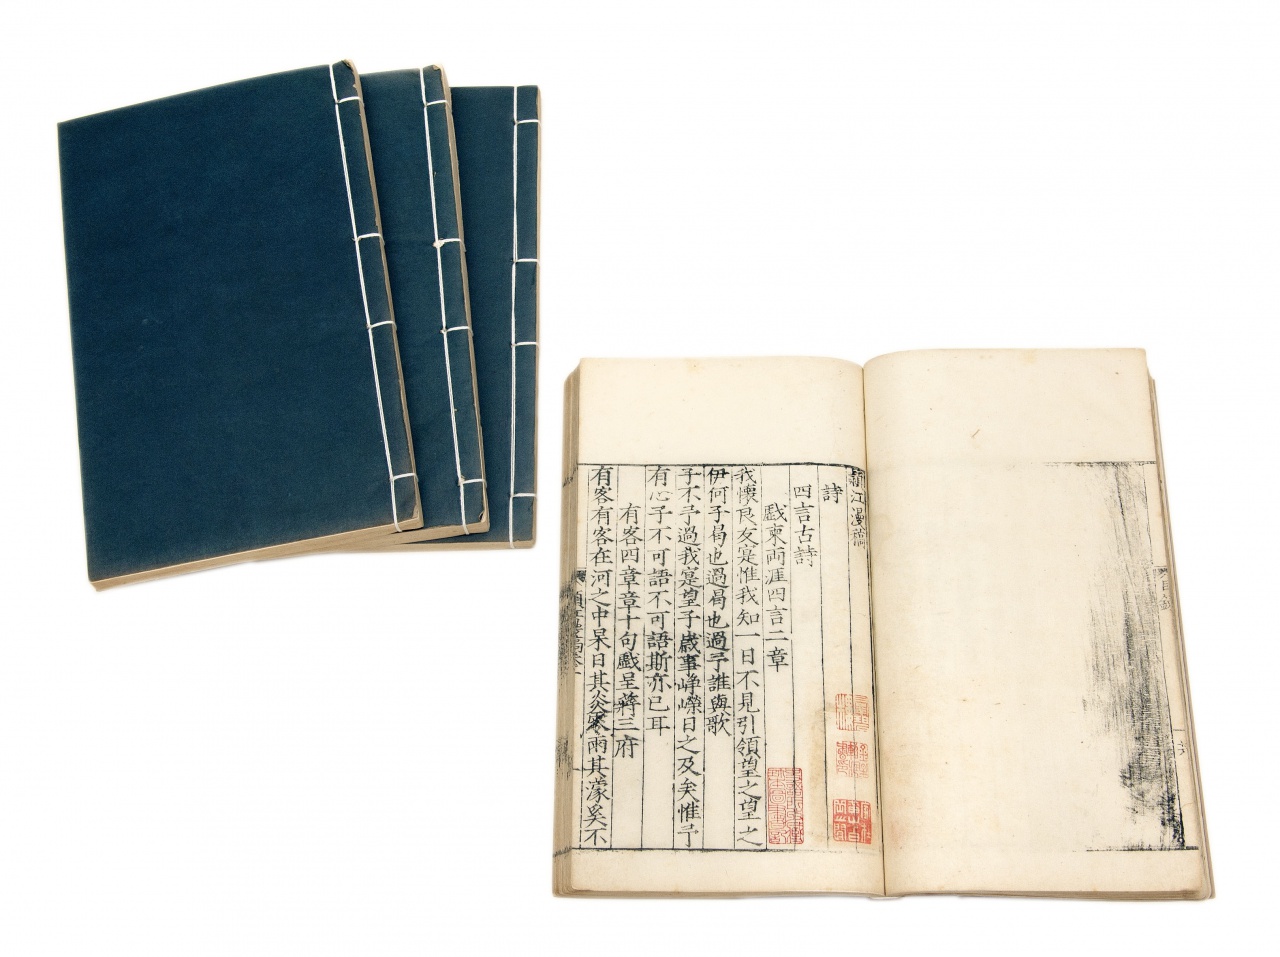 詩
四言古詩
戲柬両涯四言二章
我懷良友寔惟我知一日不見引領望之望之
伊何予曷也過曷也過予誰與歌
子不予過我寔望子歲事崢嶸日之及矣惟予
有心予不可語不可語斯亦已耳
有客四章章十句戲呈蔣三府
有客有客在河之中杲日其炎零雨其濛奚不
目錄